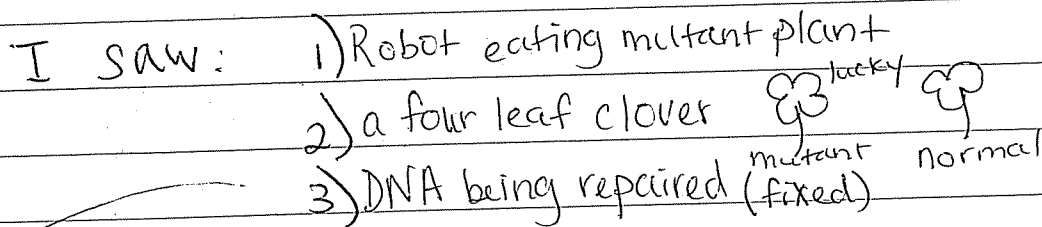 I saw: 1) Robot eating mutant plant
2) a four leaf clover lucky
mutant normal
3) DNA being repaired (fixed)